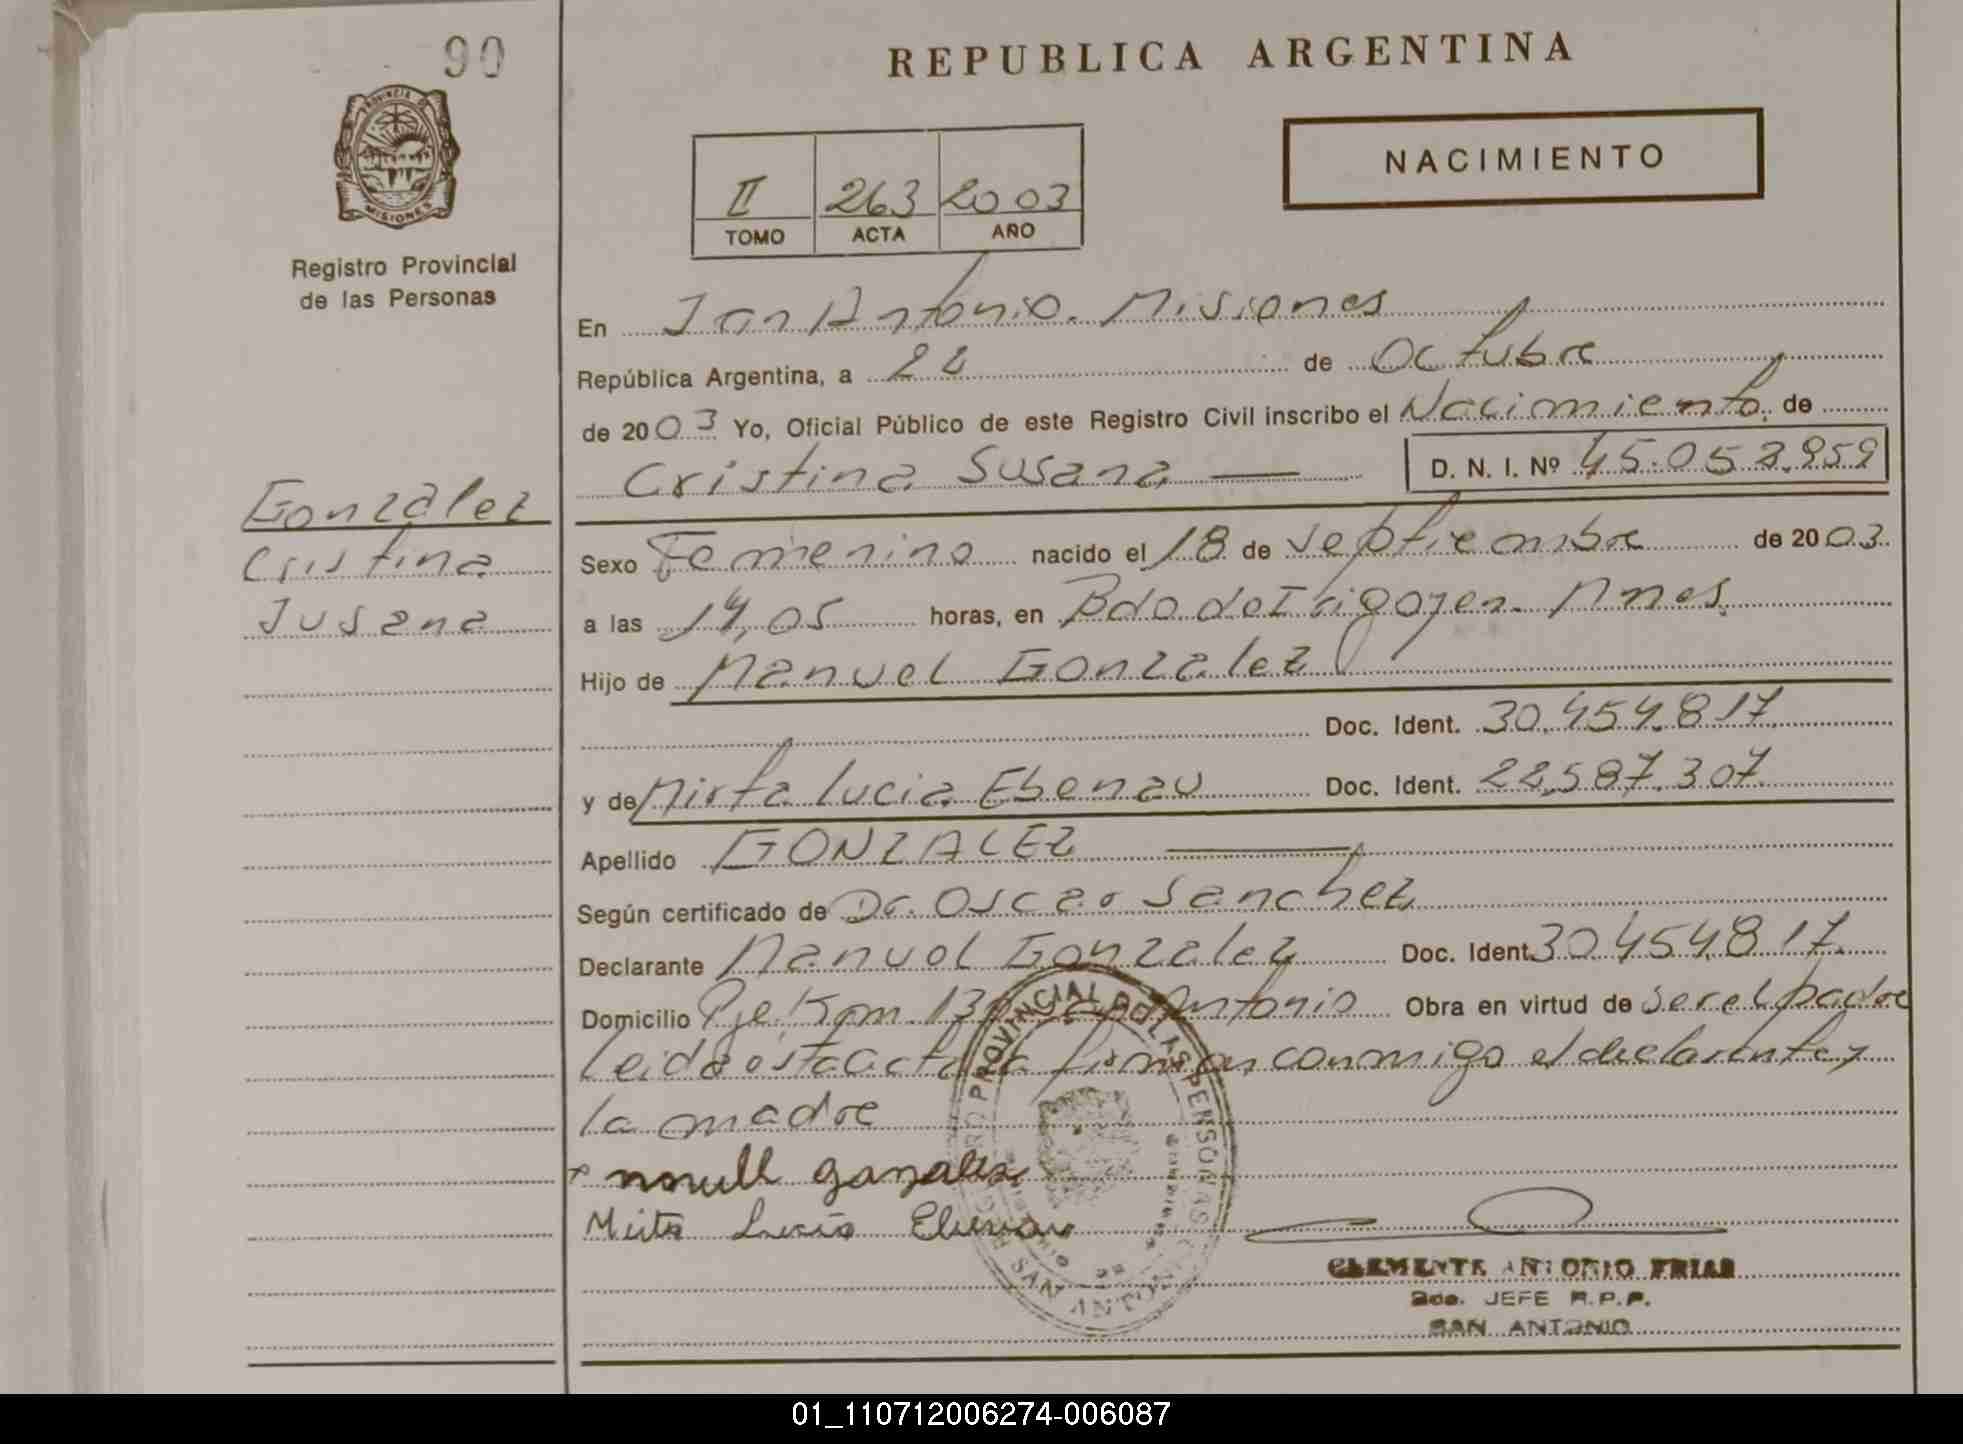 90
REPUBLICA ARGENTINA
PROVINCIA DE
MISIONES
Registro Provincial
de las Personas
NACIMIENTO
II 263 2003
TOMO ACTA AÑO
En San Antonio. Misiones
República Argentina, a 22 de Octubre
de 2003 Yo, Oficial Público de este Registro Civil inscribo el Nacimiento de
Cristina Susana D. N. I. Nº 45.053.959
Gonzalez
Cristina
Susana
Sexo Femenino nacido el 18 de Septiembre de 2003
a las 14,05 horas, en Bdo de Irigoyen. Mnes.
Hijo de Manuel Gonzalez
Doc. Ident. 30.454.817
y de Mirta Lucia Ebenau Doc. Ident. 22.587.307
Apellido GONZALEZ
Según certificado de Dr. Oscar Sanchez
Declarante Manuel Gonzalez Doc. Ident. 30.454.817.
Domicilio Pje. Km. 130 San Antonio Obra en virtud de ser el padre
Leida esta acta la firman conmigo el declarante y
la madre
gonzalez
Mirta Lucia Ebenau
PROVINCIAL DE LAS PERSONAS
SAN ANTONIO
CLEMENTE ANTONIO FRIAS
2do. JEFE R.P.P.
SAN ANTONIO
01_110712006274-006087